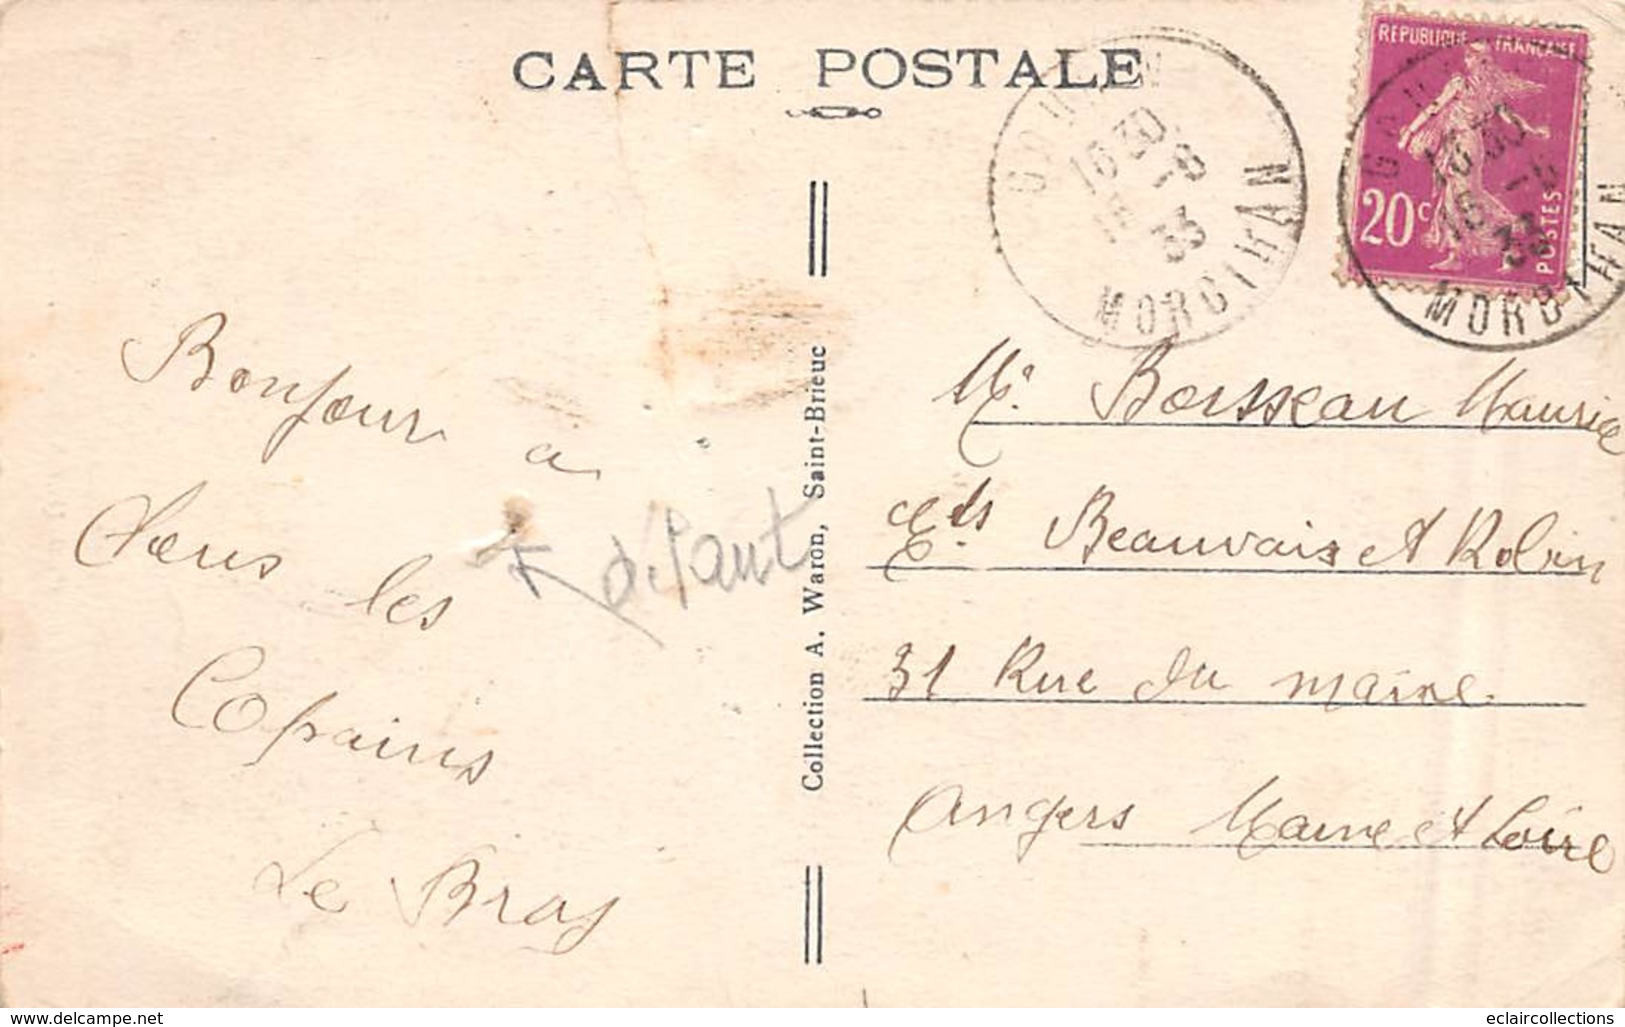 CARTE POSTALE
REPUBLIQUE FRANÇAISE
20c
POSTES
16 30
16 -8
33
MORBIHAN
16 30
16 -8
33
MORBIHAN
Bonjour à
Tous les
Copains
Le Bray
défaut
Collection A. Waron, Saint-Brieuc
Mr. Boisseau Maurice
Ets Beauvais et Robin
31 Rue du Maine
Angers Maine et Loire
www.delcampe.net
eclaircollections